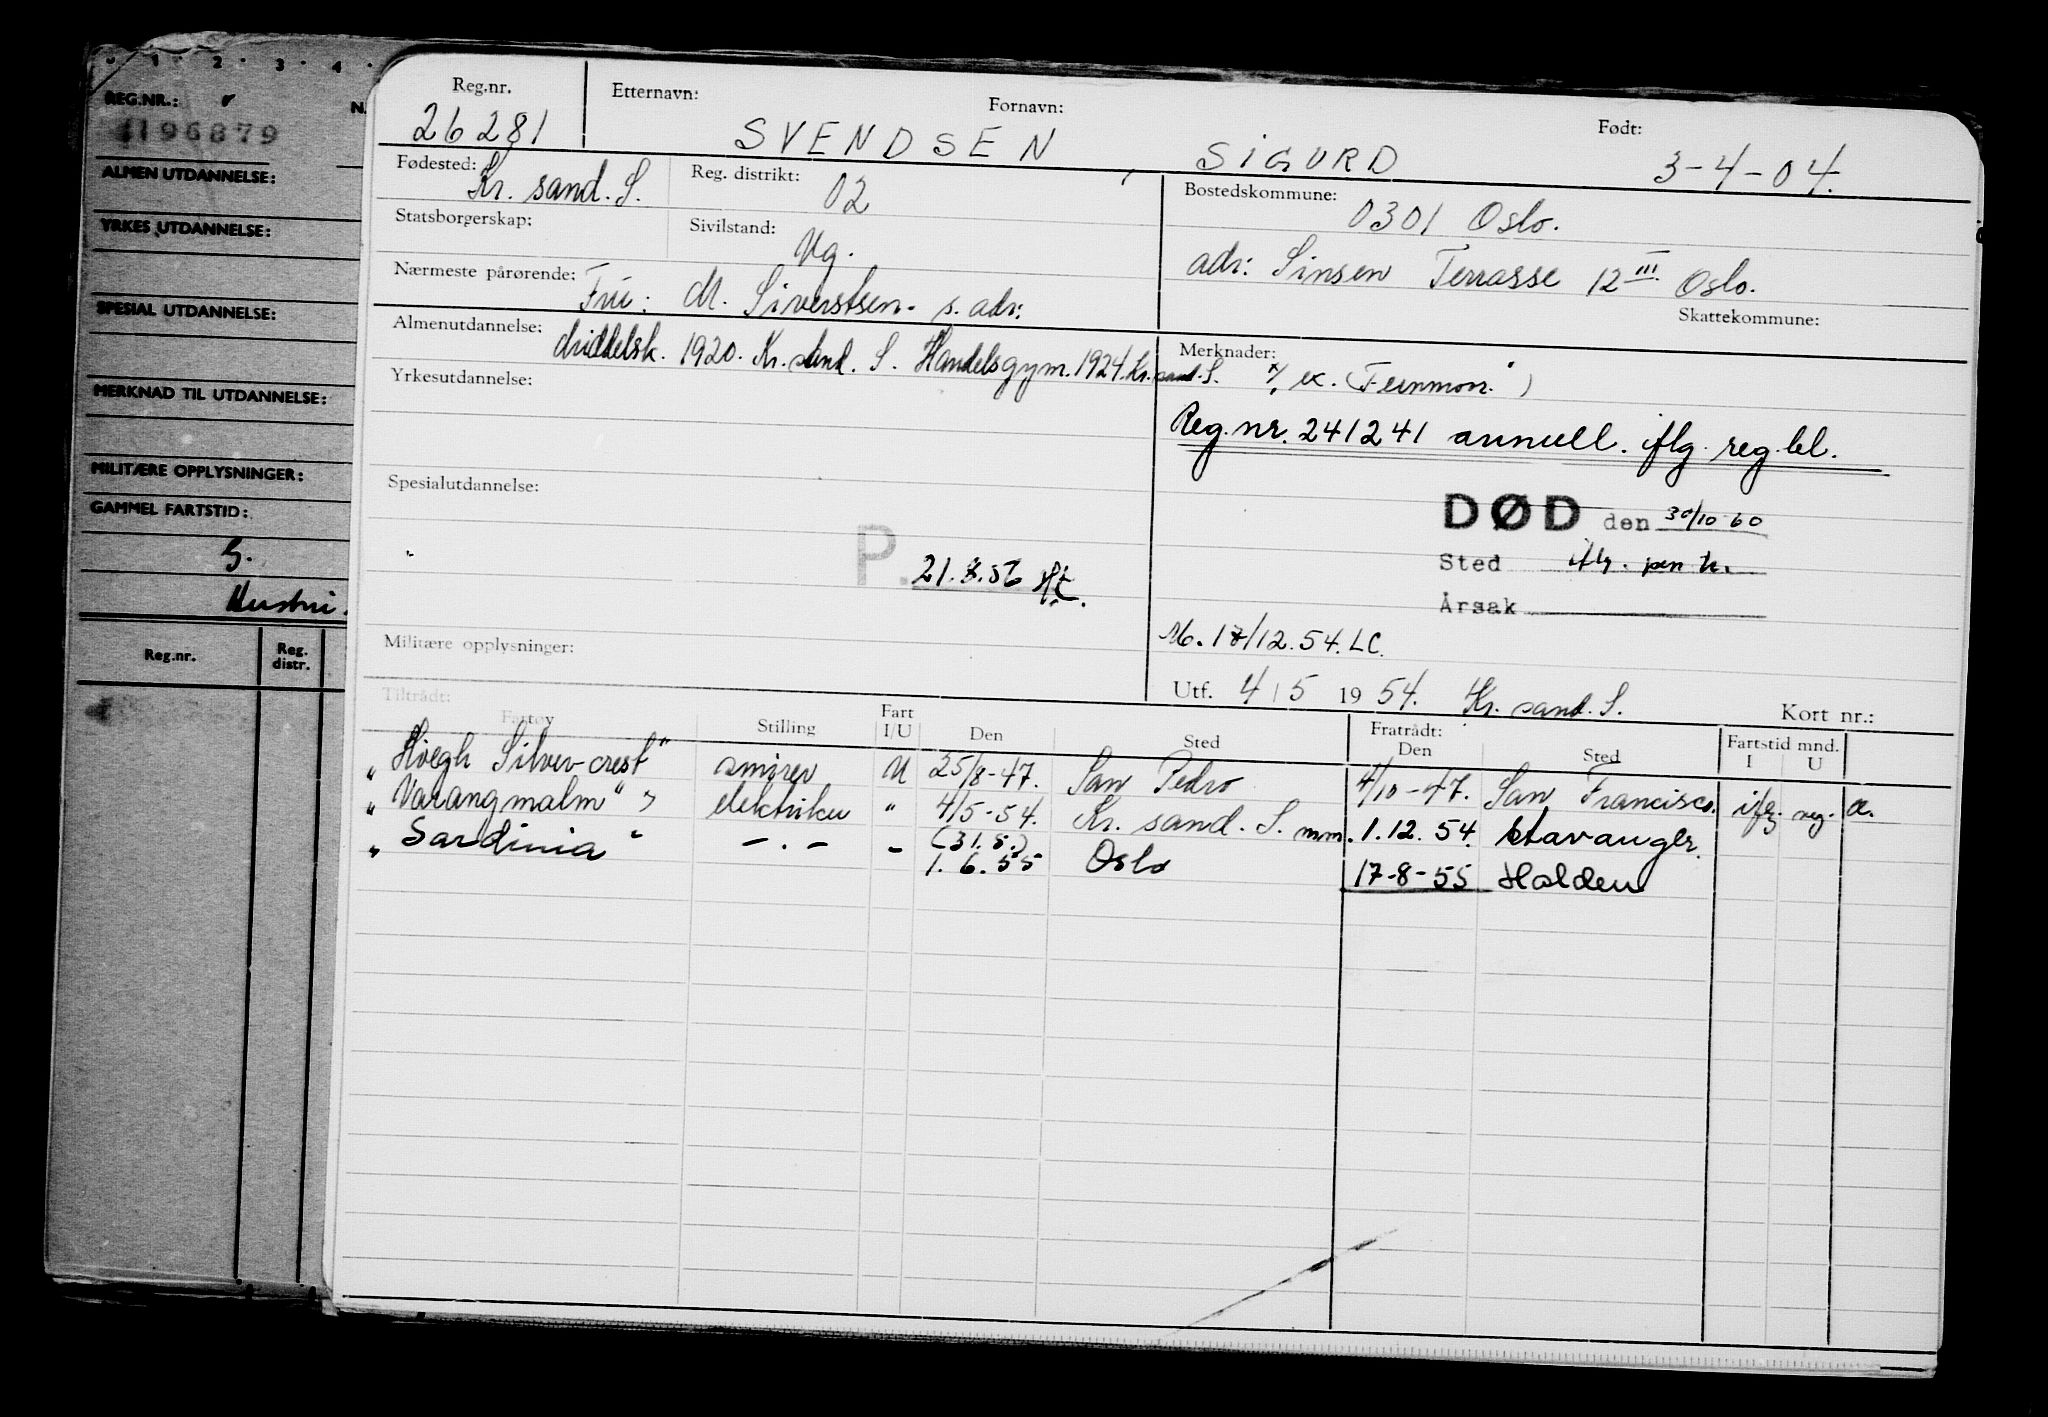 1 2 3 4
REG.NR.:
1196879
ALMEN UTDANNELSE:
YRKES UTDANNELSE:
SPESIAL UTDANNELSE:
MERKNAD TIL UTDANNELSE:
MILITÆRE OPPLYSNINGER:
GAMMEL FARTSTID:
Reg.nr. Reg. distr.
Reg.nr. Etternavn: Fornavn: Født:
26281 SVENDSEN, SIGURD 3-4-04.
Fødested: Kr. sand. S. Reg. distrikt: 02 Bostedskommune: 0301 Oslo.
Statsborgerskap: Sivilstand: Ug. adr: Sinsen Terrasse 12 III Oslo.
Nærmeste pårørende: Fru: M. Siverstsen. s. adr: Skattekommune:
Almenutdannelse: Middelsk. 1920. Kr. sand. S. Handelsgym. 1924. Kr. sand. S. Merknader: x/ ex. ("Fernmoor")
Yrkesutdannelse:
Reg.nr. 241241 annull. iflg. reg.bl.
Spesialutdannelse:
DØD den 30/10 60
P. 21.8.56 Sted iflg. pen tr.
Årsak
Militære opplysninger: M. 17/12.54. LC.
Utf. 4/5 1954. Kr. sand. S. Kort nr.:
Tiltrådt: Fratrådt: Fartstid mnd.
Fartøy Stilling Fart I/U Den Sted Den Sted I U
"Höegh Silver-crest" smører U 25/8-47. San Pedro 4/10-47. San Francisco. iflg. reg. a.
"Varangmalm" elektriker " 4/5-54. Kr. sand. S. mm. 1.12.54. Stavanger.
"Sardinia" -.- - (31.5.) 1.6.55 Oslo 17-8-55 Halden